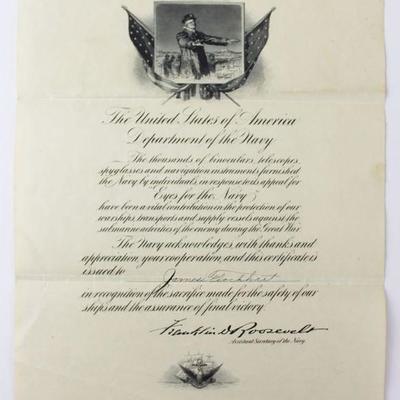 The United States of America
Department of the Navy
The thousands of binoculars, telescopes,
spyglasses and navigation instruments furnished
the Navy by individuals, in response to its appeal for
"Eyes for the Navy"
have been a vital contribution in the protection of our
warships, transports and supply vessels against the
submarine activities of the enemy during the Great War.
The Navy acknowledges, with thanks and
appreciation, your cooperation, and this certificate is
issued to James Lockhart
in recognition of the sacrifice made for the safety of our
ships and the assurance of final victory.
Franklin D Roosevelt
Assistant Secretary of the Navy.